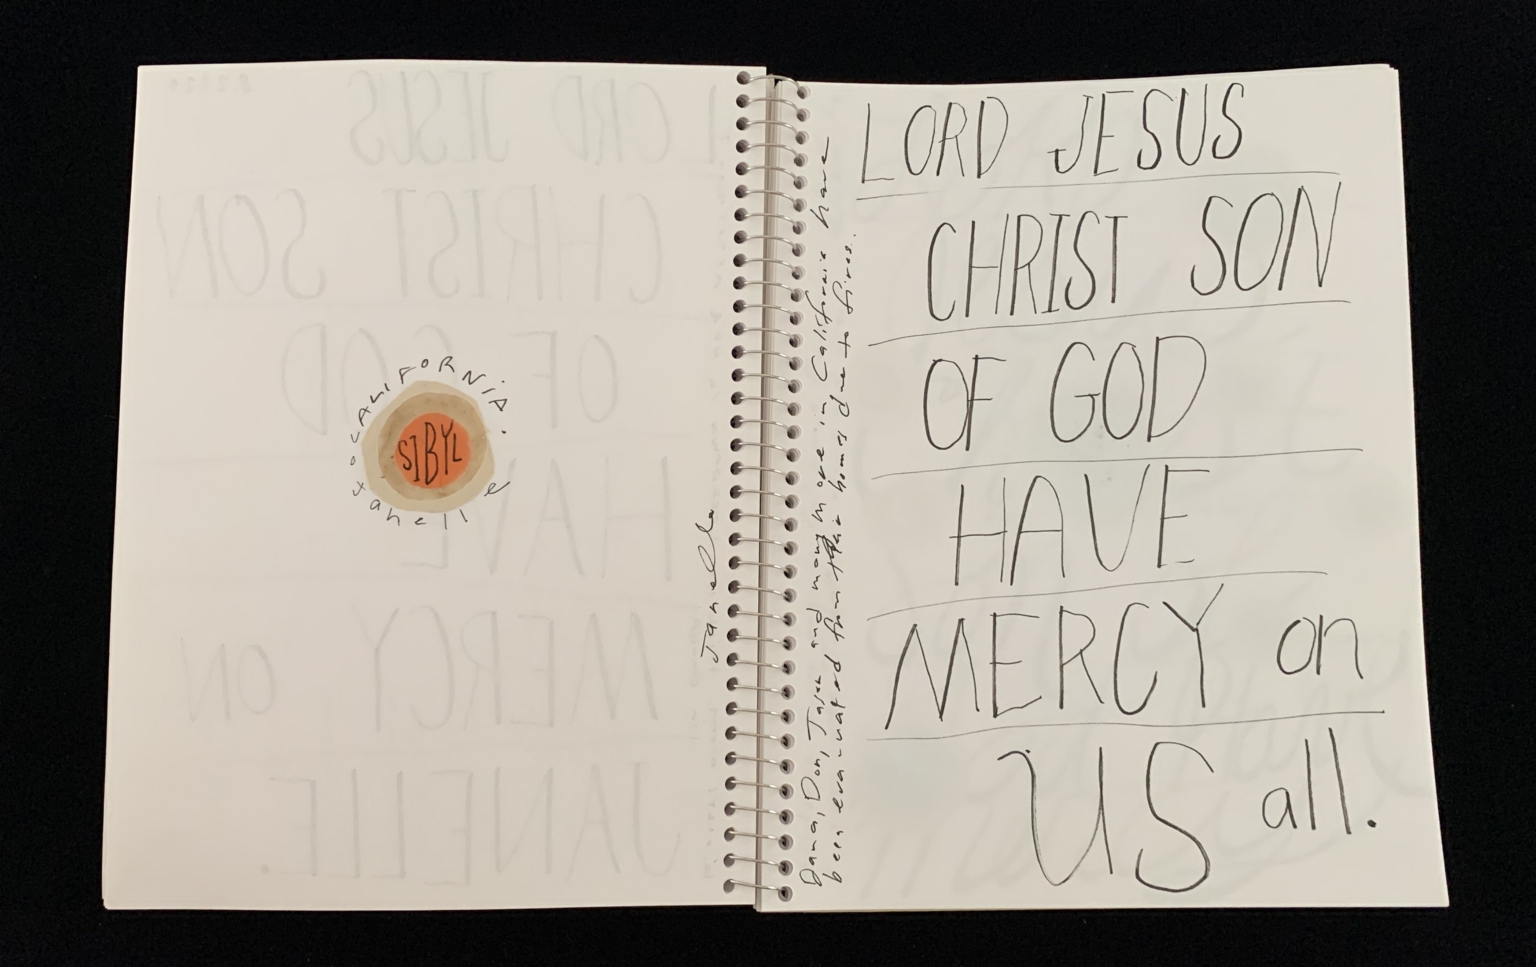 CALIFORNIA.
SIBYL
Janelle
Dana, Don, Jajah and many more in California have
been evacuated from their homes due to fires.
LORD JESUS
CHRIST SON
OF GOD
HAVE
MERCY on
US all.